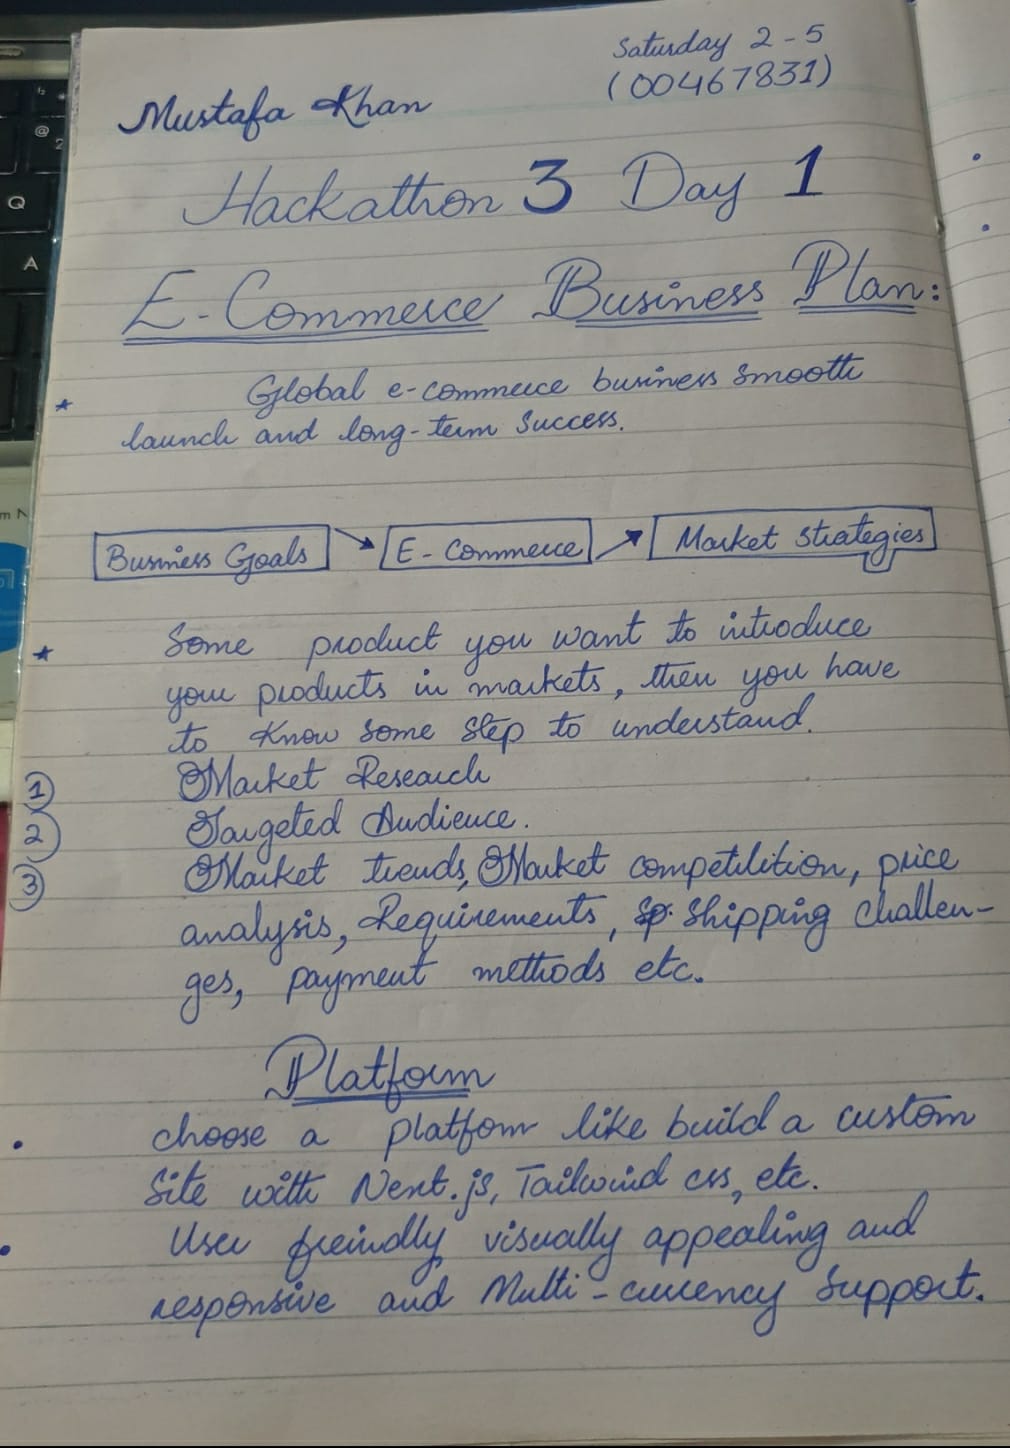 Saturday 2-5
(00467831)
Mustafa Khan
Hackathon 3 Day 1
E-Commerce Business Plan:
* Global e-commerce business smooth
launch and long-term success.
Business Goals → E-Commerce → Market Strategies
* Some product you want to introduce
your products in markets, then you have
to know some step to understand.
① Market Research
② Targeted Audience.
③ Market trends, Market competilition, price
analysis, Requirements, Shipping challen-
ges, payment methods etc.
Platform
• choose a platfom like build a custom
Site with Next.js, Tailwind css, etc.
• User freindly, visually appealing and
responsive and Multi-currency Support.
Q
A
@
2